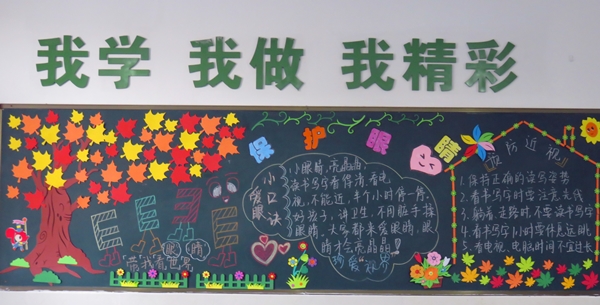 我学 我做 我精彩
保护眼睛
爱眼小口诀
小眼睛，亮晶晶，
读书写字看得清，看电
视，不能近，半个小时停一停，
好孩子，讲卫生，不用脏手揉
眼睛，大家都来爱眼睛，眼
睛才会亮晶晶！
E E E E
眼睛
带我看世界
『预防近视』
1.保持正确的读写姿势
2.看书写字时要注意光线
3.躺着走路时不要读书写字
4.看书写字1小时要休息远眺
5.看电视、电脑时间不宜过长